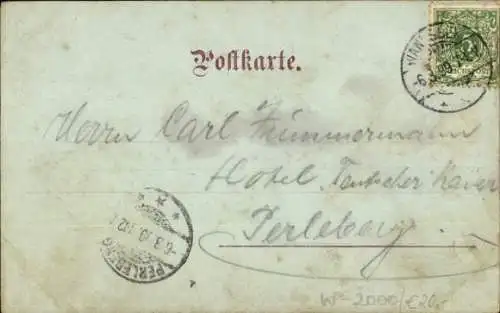 Postkarte.
Herrn Carl Zimmermann
Hotel Deutscher Kaiser
Perleberg
PERLEBERG
W-2000/€20,-